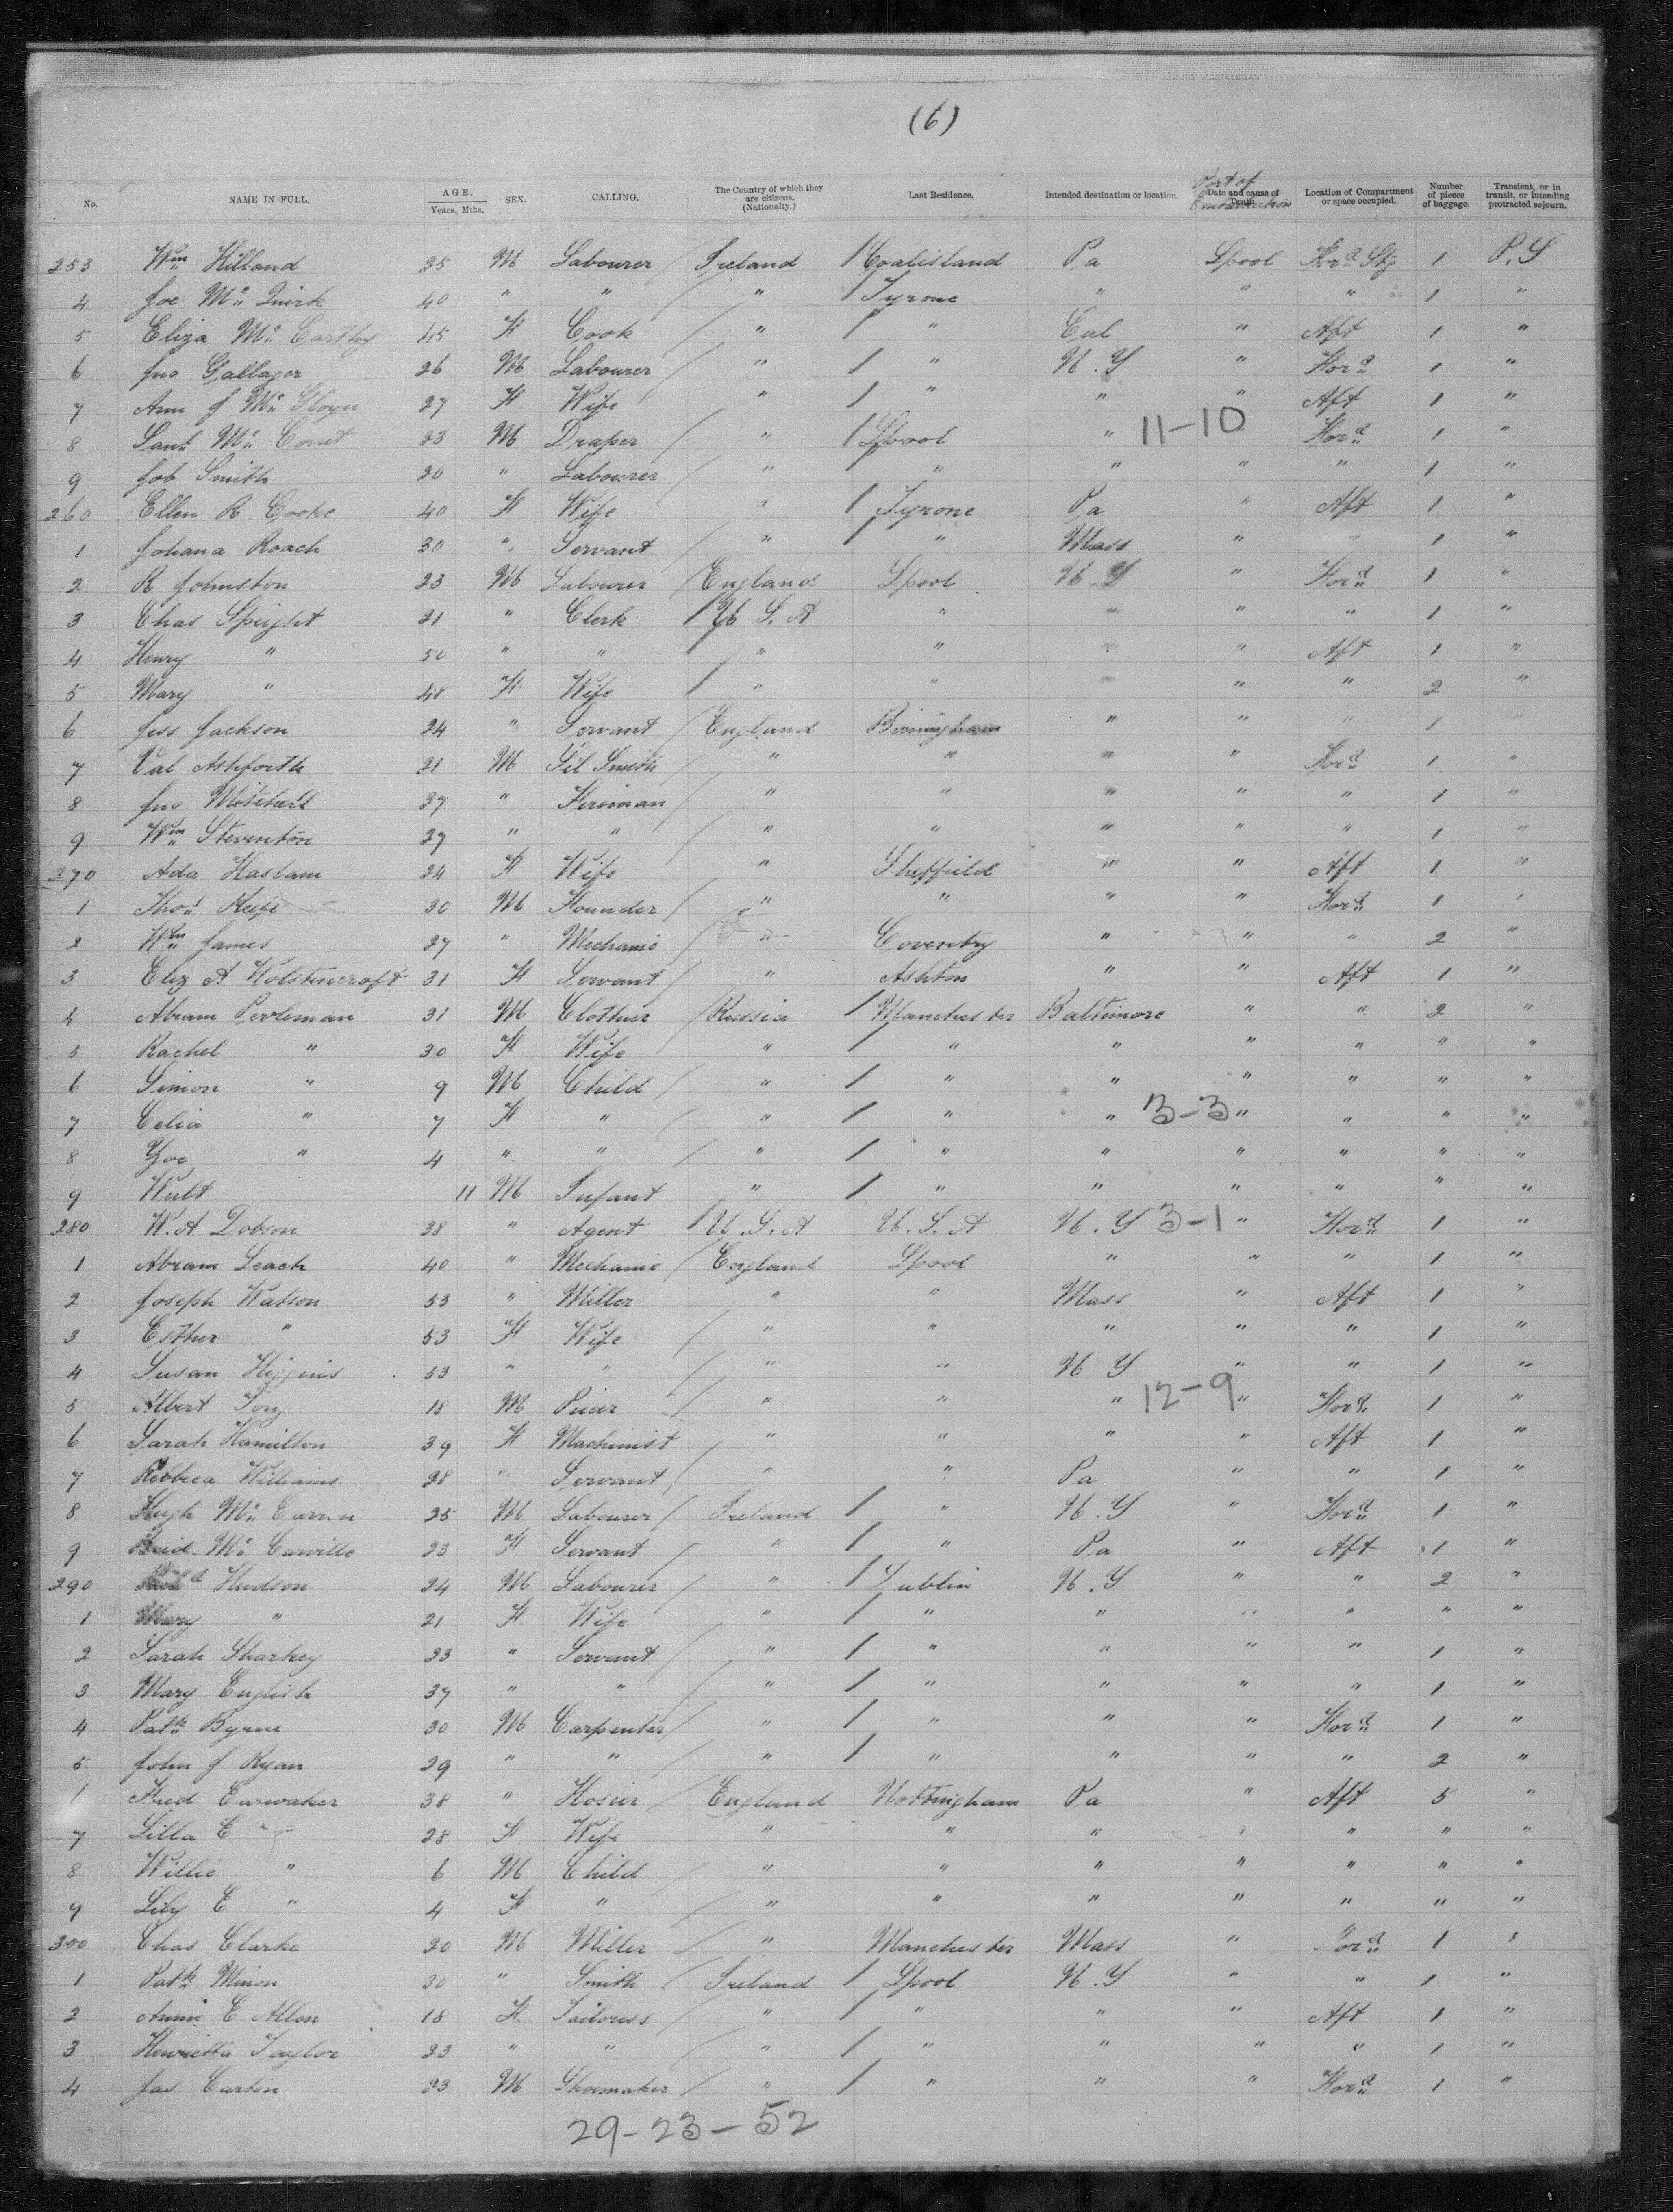 (6)
No. NAME IN FULL. AGE. Years. Mths. SEX. CALLING. The Country of which they are citizens. (Nationality.) Last Residence. Intended destination or location. Port of Embarkation Date and cause of Death. Location of Compartment or space occupied. Number of pieces of baggage. Transient, or in transit, or intending protracted sojourn.
253 Wm Hilland 25 M Labourer / Ireland / Coalisland Pa Lpool For'd Stg 1 P.S
4 Joe Mc Quirk 40 " " / " / Tyrone " " " 1 "
5 Eliza Mc Carthy 45 F Cook / " / " Cal " Aft 1 "
6 Jno Gallager 26 M Labourer / " / " N.Y " For'd 1 "
7 Ann J Mc 27 F Wife / " / " " " Aft 1 "
8 Saml Mc 23 M Draper / " / Lpool " 11-10 For'd 1 "
9 Job Smith 20 " Labourer / " / " " " " 1 "
260 Ellen R Cooke 40 F Wife / " / Tyrone Pa " Aft 1 "
1 Johana Roach 30 " Servant / " / " Mass " " 1 "
2 R Johnston 23 M Labourer / England Lpool N.Y " For'd 1 "
3 Chas Speight 21 " Clerk / U.S.A " " " " 1 "
4 Henry " 50 " " / " " " " Aft 1 "
5 Mary " 48 F Wife / " " " " " 2 "
6 Jess Jackson 24 " Servant / England Birmingham " " " 1 "
7 Val Ashforth 21 M Sil Smith / " " " " For'd 1 "
8 Jno Mitchell 27 " Fireman / " " " " " 1 "
9 Wm Steventon 27 " " / " " " " " 1 "
270 Ada Haslam 24 F Wife / " Sheffield " " Aft 1 "
1 Thos Keefe 30 M Founder / " " " " For'd 1 "
2 Wm James 27 " Mechanic / " Coventry " " " 2 "
3 Eliz A Wolstencroft 31 F Servant / " Ashton " " Aft 1 "
4 Abram Perleman 31 M Clothier / Russia / Manchester Baltimore " " 2 "
5 Rachel " 30 F Wife / " / " " " " " "
6 Simon " 9 M Child / " / " " " " " "
7 Celia " 7 F " / " / " " 3-3 " " " "
8 Zoe " 4 " " / " / " " " " " "
9 Wult 11 M Infant " / " " " " " "
280 W.A Dobson 38 " Agent / U.S.A U.S.A N.Y 3-1 " For'd 1 "
1 Abram Leach 40 " Mechanic / England Lpool " " " 1 "
2 Joseph Watson 53 " Miller / " " Mass " Aft 1 "
3 Esther " 53 F Wife / " " " " " 1 "
4 Susan Higgins 53 " " / " " N Y " " 1 "
5 Albert 18 M / " " " 12-9 " For'd 1 "
6 Sarah Hamilton 39 F Machinist " " " " Aft 1 "
7 Rebbeca Williams 28 " Servant / " " Pa " " 1 "
8 Hugh Mc 25 M Labourer / Ireland / " N.Y " For'd 1 "
9 Mc Carville 23 F Servant / " / " Pa " Aft 1 "
290 Hudson 24 M Labourer / " / Dublin N.Y " " 2 "
1 Mary " 21 F Wife / " / " " " " " "
2 Sarah Sharkey 23 " Servant / " / " " " " 1 "
3 Mary English 37 " " / " / " " " " 1 "
4 Patk Byrne 30 M Carpenter / " / " " " For'd 1 "
5 John J Ryan 29 " " / " / " " " " 2 "
Fred Earwaker 38 " Hosier / England Nottingham Pa " Aft 5 "
7 Lilla E " 28 F Wife / " " " " " " "
8 Willie " 6 M Child / " " " " " " "
9 Lily E " 4 F " / " " " " " " "
300 Chas Clarke 20 M Miller / " Manchester Mass " For'd 1 "
1 Patk Minon 30 " Smith / Ireland / Lpool N.Y " " 1 "
2 Annie E Allen 18 F. Tailoress / " / " " " Aft 1 "
3 Henrietta Taylor 23 " " / " / " " " " 1 "
4 Jas Curtin 23 M Shoemaker / " / " " " For'd 1 "
29-23-52